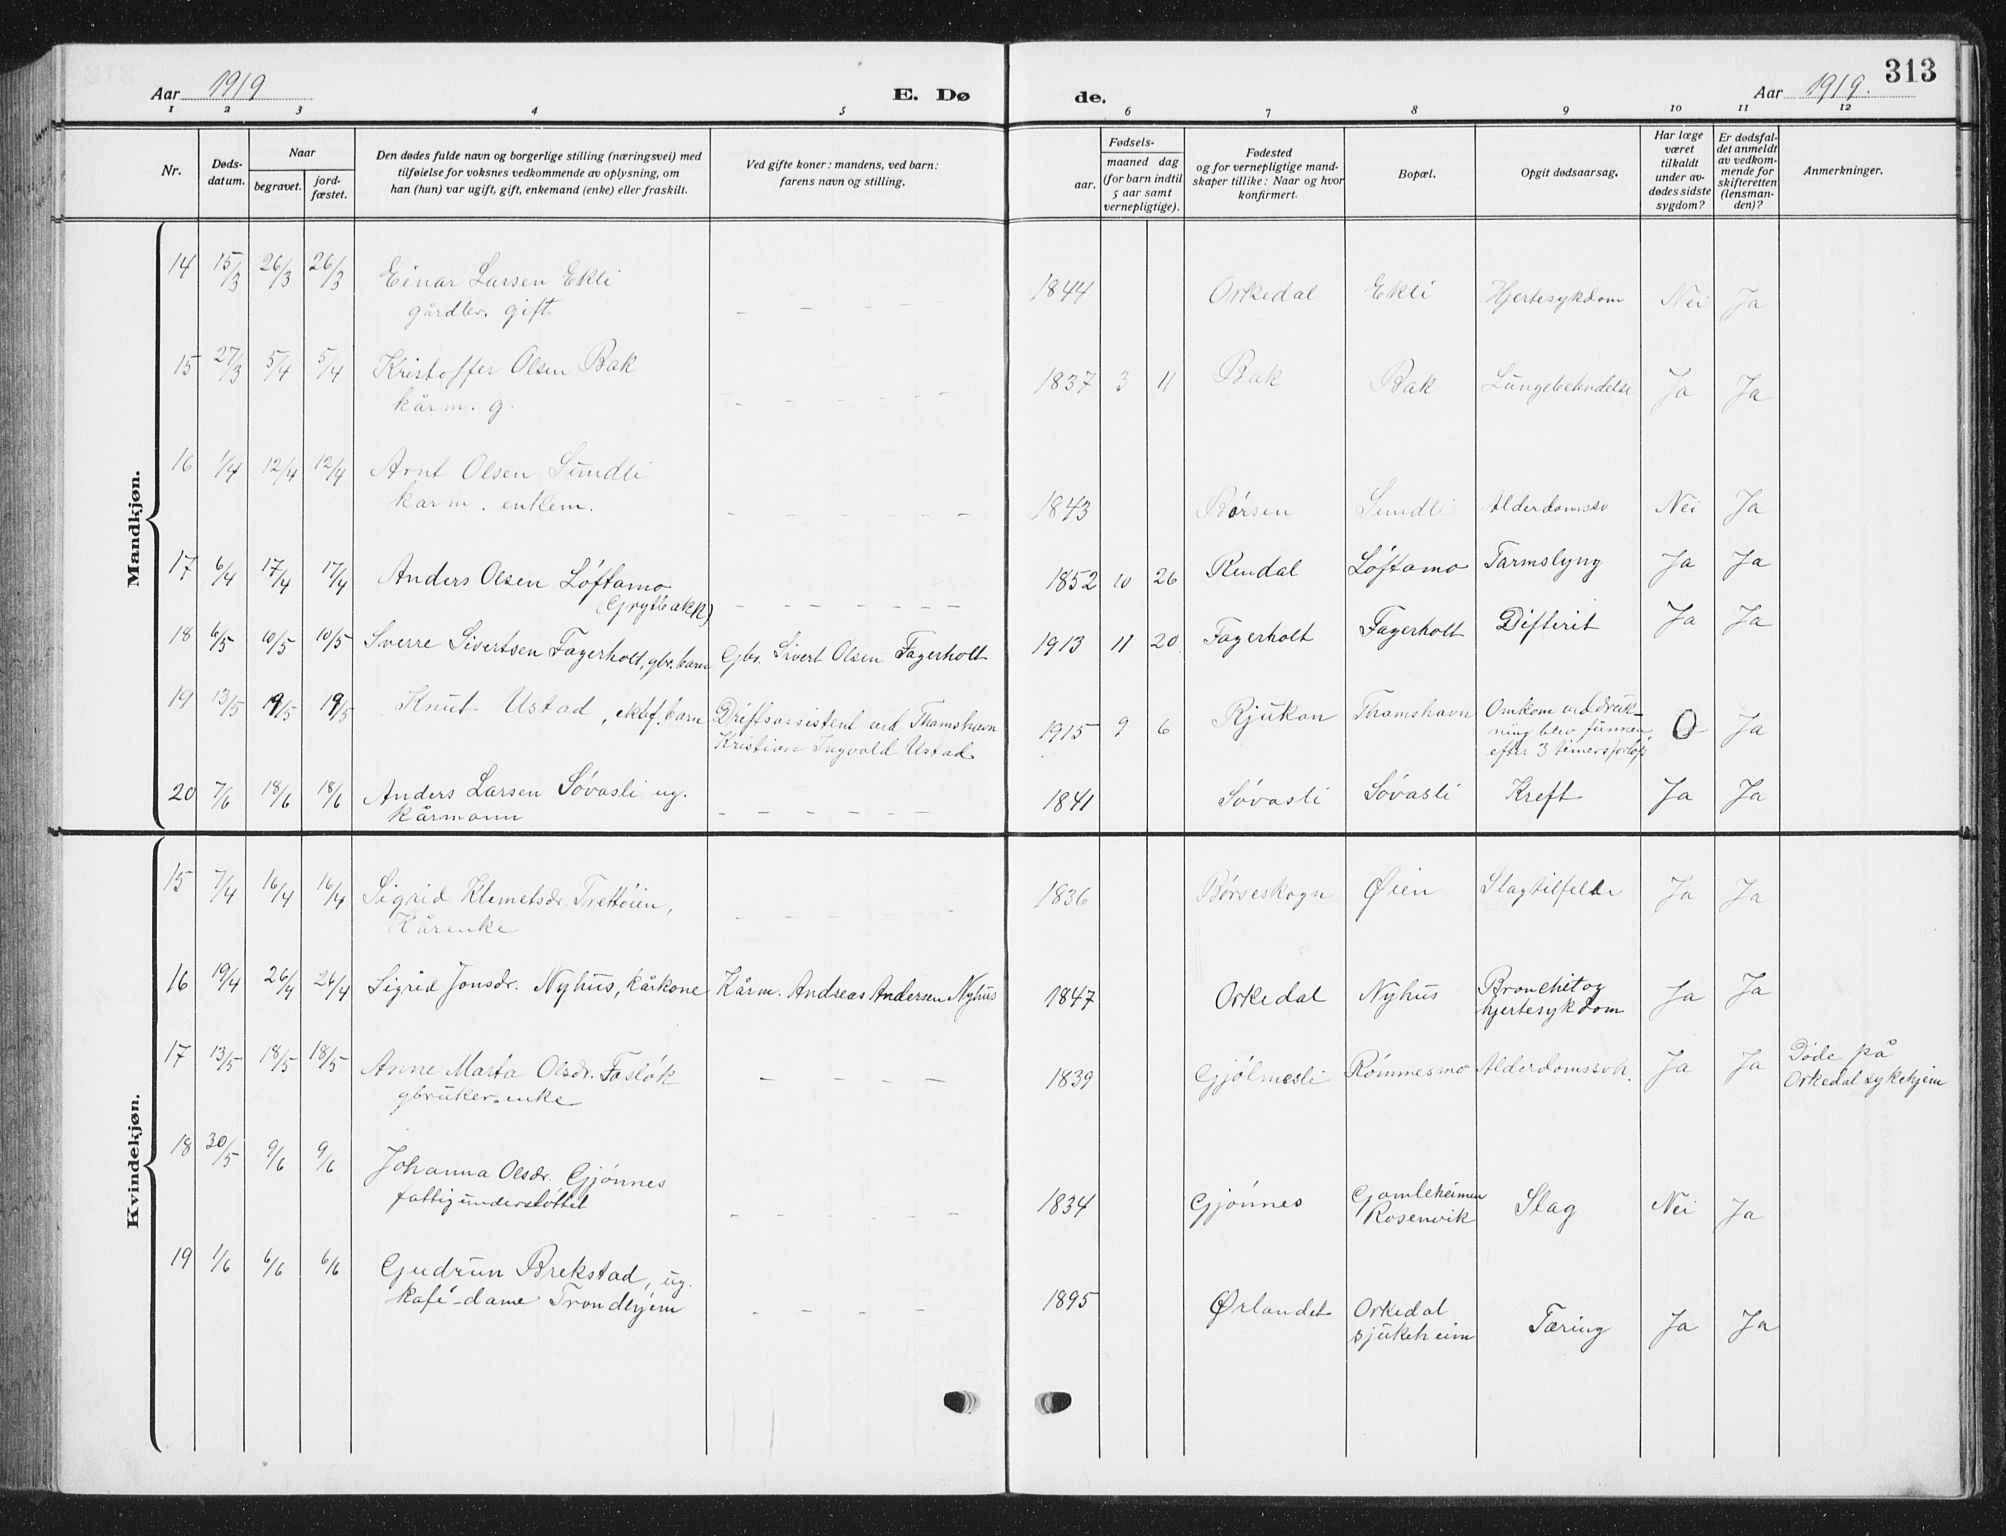 313
Aar 1919 E. Dø de. Aar 1919.
1 2 3 4 5 6 7 8 9 10 11 12
Nr.
Døds-
datum.
Naar
begravet.
jord-
fæstet.
Den dødes fulde navn og borgerlige stilling (næringsvei) med
tilføielse for voksnes vedkommende av oplysning, om
han (hun) var ugift, gift, enkemand (enke) eller fraskilt.
Ved gifte koner: mandens, ved barn:
farens navn og stilling.
Fødsels-
aar.
maaned dag
(for barn indtil
5 aar samt
vernepligtige).
Fødested
og for vernepligtige mand-
skaper tillike: Naar og hvor
konfirmert.
Bopæl.
Opgit dødsaarsag.
Har læge
været
tilkaldt
under av-
dødes sidste
sygdom?
Er dødsfal-
det anmeldt
av vedkom-
mende for
skifteretten
(lensman-
den)?
Anmerkninger.
Mandkjøn.
14 15/3 26/3 26/3 Einar Larsen Ekli 1844 Orkedal Ekli Hjertesykdom Nei Ja
gårdbr. gift
15 27/3 5/4 5/4 Kristoffer Olsen Bak 1837 3 11 Bak Bak Ja Ja
kårm. g.
16 1/4 12/4 12/4 Arnt Olsen Sundli 1843 Børsen Sundli Alderdomssv Nei Ja
karm. enkem.
17 6/4 17/4 17/4 Anders Olsen Løftamo 1852 10 26 Rindal Løftamo Tarmslyng Ja Ja
(Grytbakk)
18 6/5 10/5 10/5 Sverre Sivertsen Fagerholt, gbr. barn Gbr. Sivert Olsen Fagerholt 1913 11 20 Fagerholt Fagerholt Difterit Ja Ja
19 13/5 19/5 19/5 Knut Ustad, barn Driftsassistent ved Thamshavn 1915 9 6 Rjukan Thamshavn Omkom ved druk- 0 Ja
Kristian Ingvald Ustad ning blev funnen
efter 3 timers forløp
20 7/6 18/6 18/6 Anders Larsen Søvasli ug. 1841 Søvasli Søvasli Kreft Ja Ja
kårmann
Kvindekjøn.
15 7/4 16/4 16/4 Sigrid Klemetsdr. Trettøien, 1836 Børseskogn Øien Slagtilfelde Ja Ja
Kårenke
16 19/4 26/4 26/4 Sigrid Jonsdr. Nyhus, kårkone Kårm. Andreas Andersen Nyhus 1847 Orkedal Nyhus Bronchit og Ja Ja
hjertesykdom
17 13/5 18/5 18/5 Anne Marta Olsdr. Fasløk 1839 Gjølmesli Rømmesmo Alderdomssvk. Ja Ja Døde på
gbruker.enke Orkedal sykehjem
18 30/5 9/6 9/6 Johanna Olsdr. Gjønnes 1834 Gjønnes Gamleheimen Slag Nei Ja
fattigunderstøttet Rosenvik
19 1/6 6/6 6/6 Gudrun Brekstad, ug. 1895 Ørlandet Orkedal Tæring Ja Ja
kafé-dame Trondhjem sjukeheim